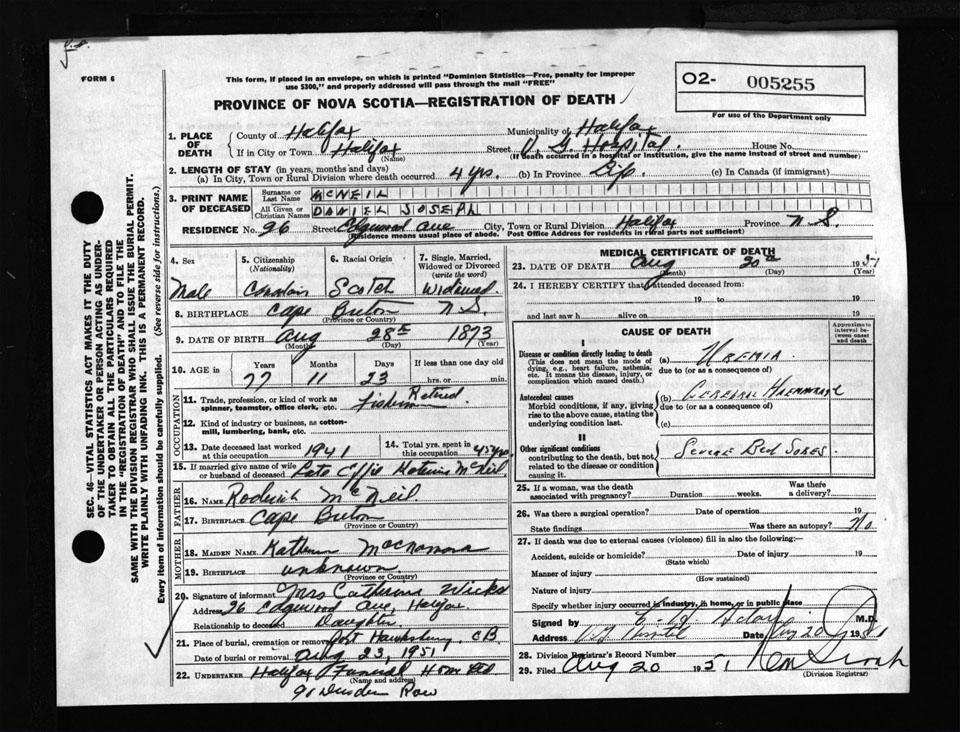 FORM 6
This form, if placed in an envelope, on which is printed "Dominion Statistics—Free, penalty for improper
use $300," and properly addressed will pass through the mail "FREE"
O2- 005255
For use of the Department only
PROVINCE OF NOVA SCOTIA—REGISTRATION OF DEATH
1. PLACE OF DEATH
County of Halifax Municipality of Halifax
If in City or Town Halifax (Name) Street V. G. Hospital House No.
(If death occurred in a hospital or institution, give the name instead of street and number)
2. LENGTH OF STAY (in years, months and days)
(a) In City, Town or Rural Division where death occurred 4 yrs. (b) In Province Life (c) In Canada (if immigrant)
3. PRINT NAME OF DECEASED
Surname or Last Name MCNEIL
All Given or Christian Names DANIEL JOSEPH
RESIDENCE No. 26 Street Edgewood Ave City, Town or Rural Division Halifax Province N.S.
Residence means usual place of abode. Post Office Address for residents in rural parts not sufficient)
4. Sex
Male
5. Citizenship (Nationality)
Canadian
6. Racial Origin
Scotch
7. Single, Married, Widowed or Divorced (write the word)
Widowed
8. BIRTHPLACE Cape Breton N.S.
(Province or Country)
9. DATE OF BIRTH Aug 28th 1873
(Month) (Day) (Year)
10. AGE in Years Months Days If less than one day old
77 11 23 hrs. or min.
OCCUPATION
11. Trade, profession, or kind of work as spinner, teamster, office clerk, etc. Retired Fisherman
12. Kind of industry or business, as cotton-mill, lumbering, bank, etc.
13. Date deceased last worked at this occupation 1941
14. Total yrs. spent in this occupation 45 yrs.
15. If married give name of wife or husband of deceased Late Effie McNeil
FATHER
16. NAME Roderick McNeil
17. BIRTHPLACE Cape Breton
(Province or Country)
MOTHER
18. MAIDEN NAME Macnamara
19. BIRTHPLACE unknown
(Province or Country)
20. Signature of informant Mrs Catherine Wicks
Address 26 Edgewood Ave, Halifax
Relationship to deceased Daughter
21. Place of burial, cremation or removal Port Hawksbury, CB
Date of burial or removal Aug 23, 1951
22. UNDERTAKER Halifax Funeral Home Ltd
Row
MEDICAL CERTIFICATE OF DEATH
23. DATE OF DEATH Aug 20th 1951
(Month) (Day) (Year)
24. I HEREBY CERTIFY that I attended deceased from:
19 to 19
and last saw h alive on 19
CAUSE OF DEATH
Approximate interval between onset and death
I
Disease or condition directly leading to death
(This does not mean the mode of dying, e.g., heart failure, asthenia, etc. It means the disease, injury, or complication which caused death.)
(a) UREMIA
due to (or as a consequence of)
Antecedent causes
Morbid conditions, if any, giving rise to the above cause, stating the underlying condition last.
(b) CEREBRAL HAEMORRHAGE
due to (or as a consequence of)
(c)
II
Other significant conditions
contributing to the death, but not related to the disease or condition causing it.
SEVERE BED SORES
25. If a woman, was the death associated with pregnancy? Duration weeks. Was there a delivery?
26. Was there a surgical operation? Date of operation 19
State findings Was there an autopsy? No
27. If death was due to external causes (violence) fill in also the following:—
Accident, suicide or homicide? Date of injury 19
(State which)
Manner of injury
(How sustained)
Nature of injury
Specify whether injury occurred in industry, in home, or in public place
Signed by M.D.
Address V G Hospital Date Aug 20 1951
28. Division Registrar's Record Number
29. Filed Aug 20 1951
(Division Registrar)
SEC. 46—VITAL STATISTICS ACT MAKES IT THE DUTY
OF THE UNDERTAKER OR PERSON ACTING AS UNDER-
TAKER TO OBTAIN ALL THE PARTICULARS REQUIRED
IN THE "REGISTRATION OF DEATH" AND TO FILE THE
SAME WITH THE DIVISION REGISTRAR WHO SHALL ISSUE THE BURIAL PERMIT.
WRITE PLAINLY WITH UNFADING INK. THIS IS A PERMANENT RECORD.
Every item of information should be carefully supplied. (See reverse side for instructions.)